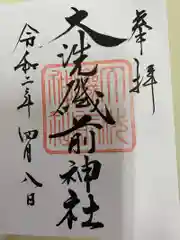 奉拝
大洗磯前神社
令和三年四月八日